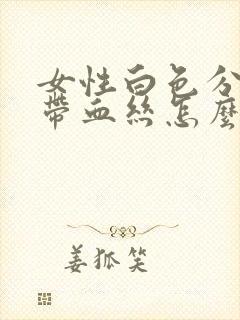 女性白色分
帶血絲怎麼
姜狐笑